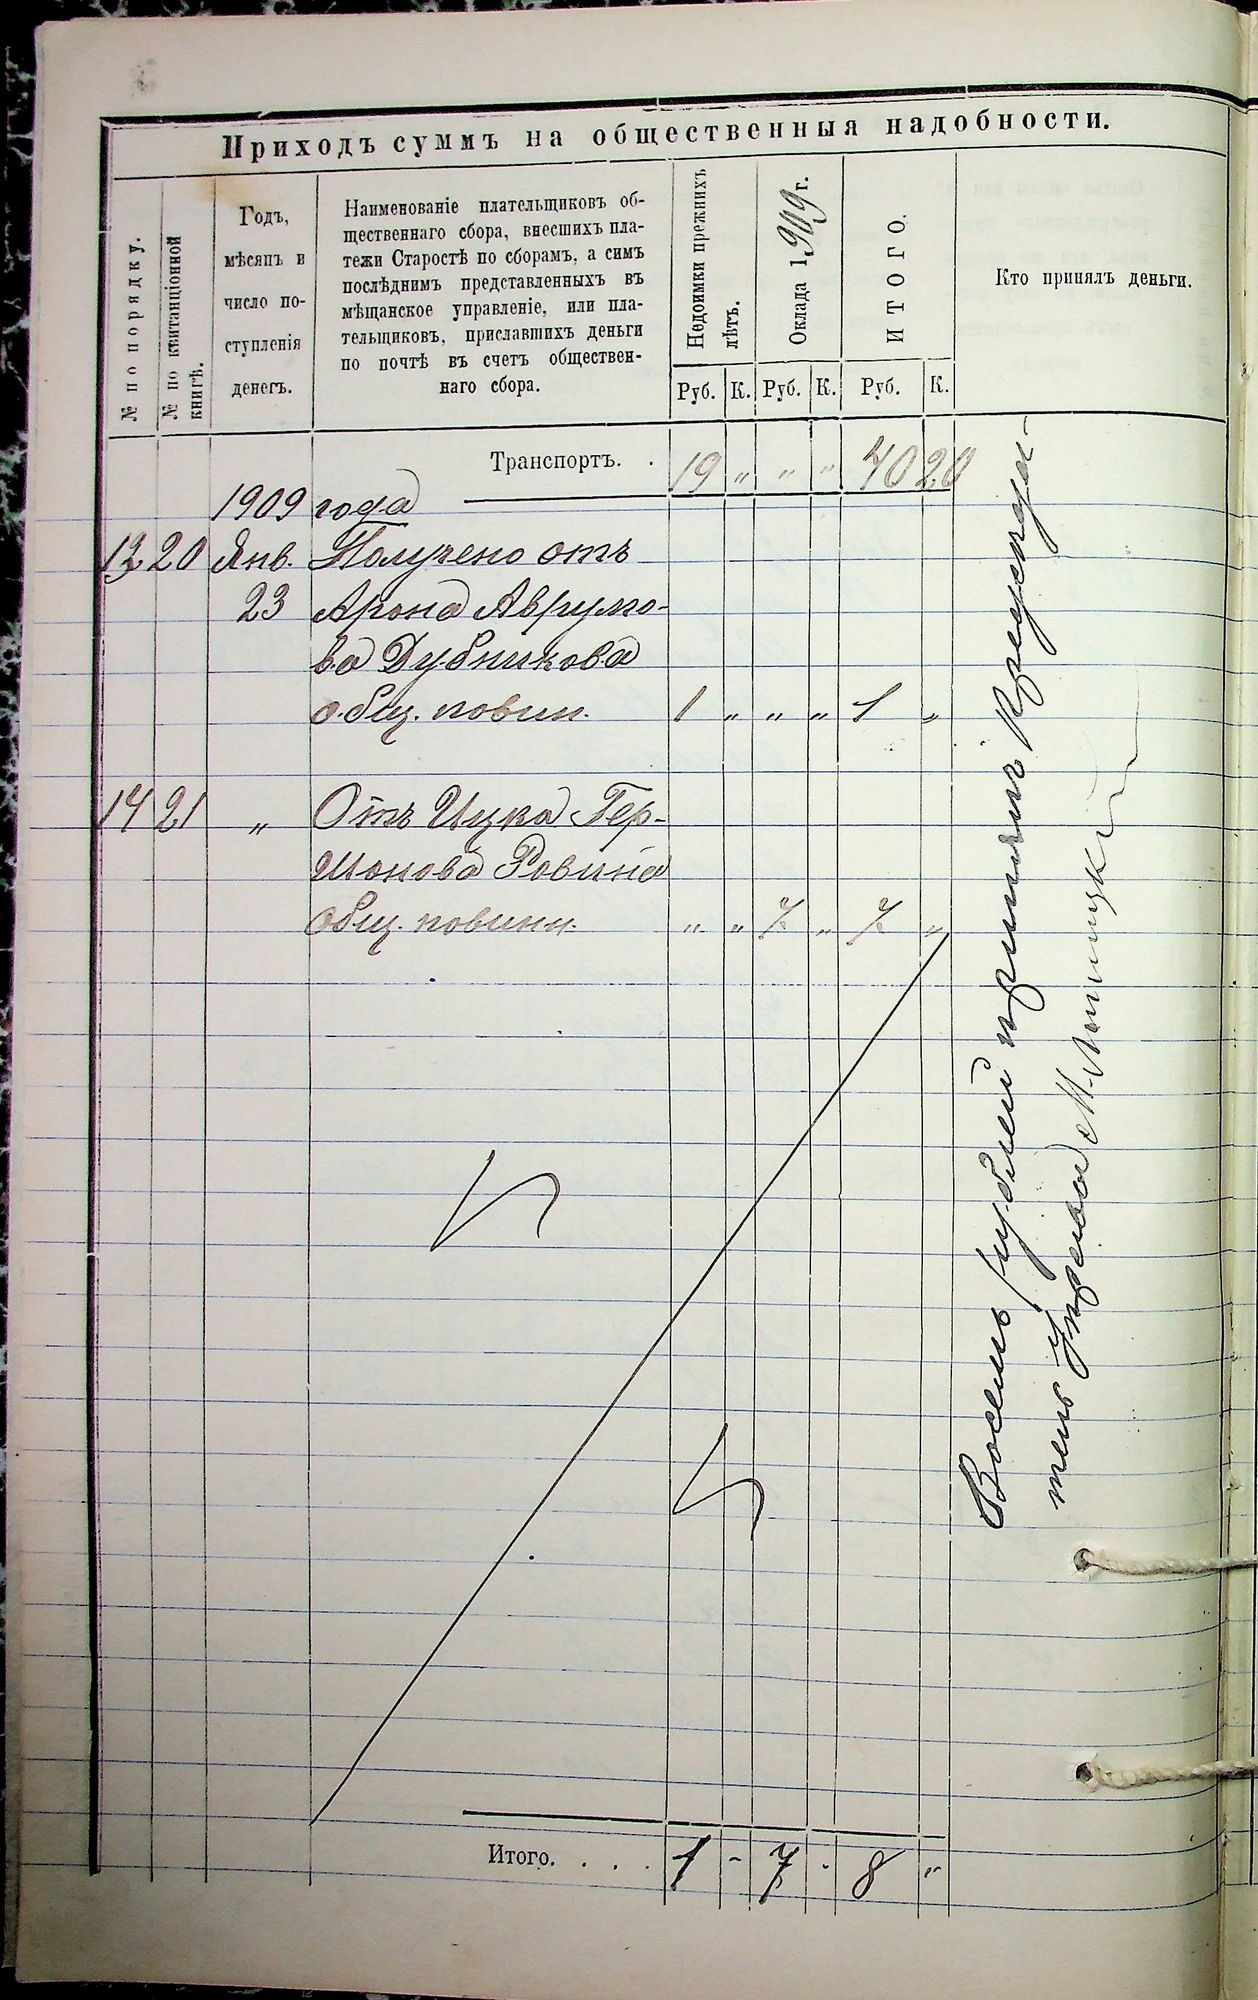 Приходъ суммъ на общественныя надобности.
№ по порядку.
№ по квитанціонной
книгѣ.
Годъ,
мѣсяцъ и
число по-
ступленія
денегъ.
Наименованіе плательщиковъ об-
щественнаго сбора, внесшихъ пла-
тежи Старостѣ по сборамъ, а симъ
послѣднимъ представленныхъ въ
мѣщанское управленіе, или пла-
тельщиковъ, приславшихъ деньги
по почтѣ въ счетъ обществен-
наго сбора.
Недоимки прежнихъ
лѣтъ.
Оклада 1909 г.
ИТОГО.
Кто принялъ деньги.
Руб. К. Руб. К. Руб. К.
Транспортъ. . 19 „ „ „ 40 20
1909 года
13 20 Янв. Получено отъ
23 Арона Аврумо-
ва Дубникова
общ. повин. 1 „ „ „ 1 „
14 21 „ Отъ Ицка Гер-
шонова Ровина
общ. повинн. „ „ 7 „ 7 „
Восемь рублей принялъ
М.
Итого. . . . 1 - 7 - 8 „